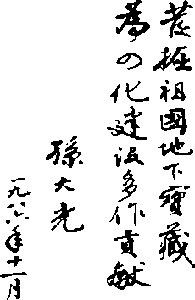 发掘祖國地下寶藏
為四化建设多作貢献
孫大光
一九八六年十一月